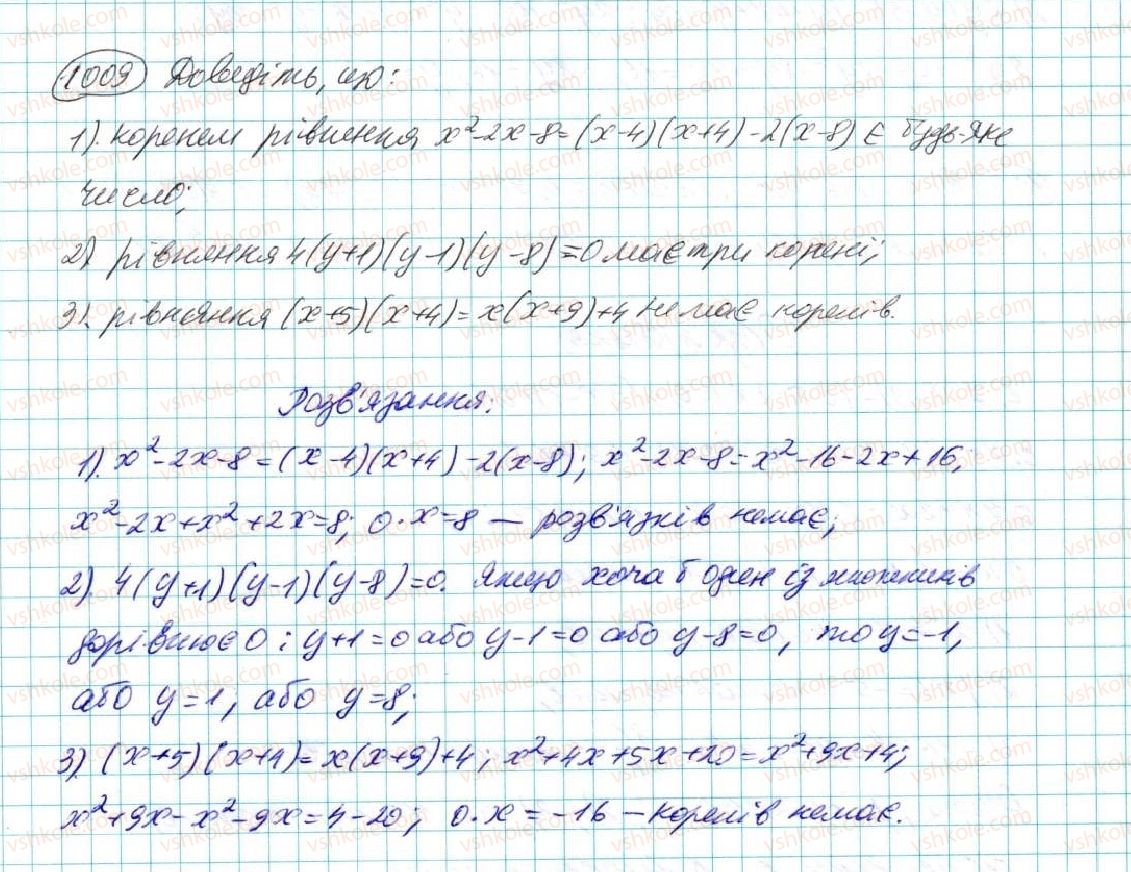 1009 Доведіть, що:
1). коренем рівняння x²-2x-8=(x-4)(x+4)-2(x-8) є будь-яке
число;
2) рівняння 4(y+1)(y-1)(y-8)=0 має три корені;
3). рівняння (x+5)(x+4)=x(x+9)+4 не має коренів.
Розв'язання:
1). x²-2x-8=(x-4)(x+4)-2(x-8); x²-2x-8=x²-16-2x+16;
x²-2x+x²+2x=8; 0·x=8 — розв'язків немає;
2). 4(y+1)(y-1)(y-8)=0. Якщо хоча б один із множників
дорівнює 0: y+1=0 або y-1=0 або y-8=0, то y=-1,
або y=1, або y=8;
3) (x+5)(x+4)=x(x+9)+4; x²+4x+5x+20=x²+9x+4;
x²+9x-x²-9x=4-20; 0·x=-16 — коренів немає.